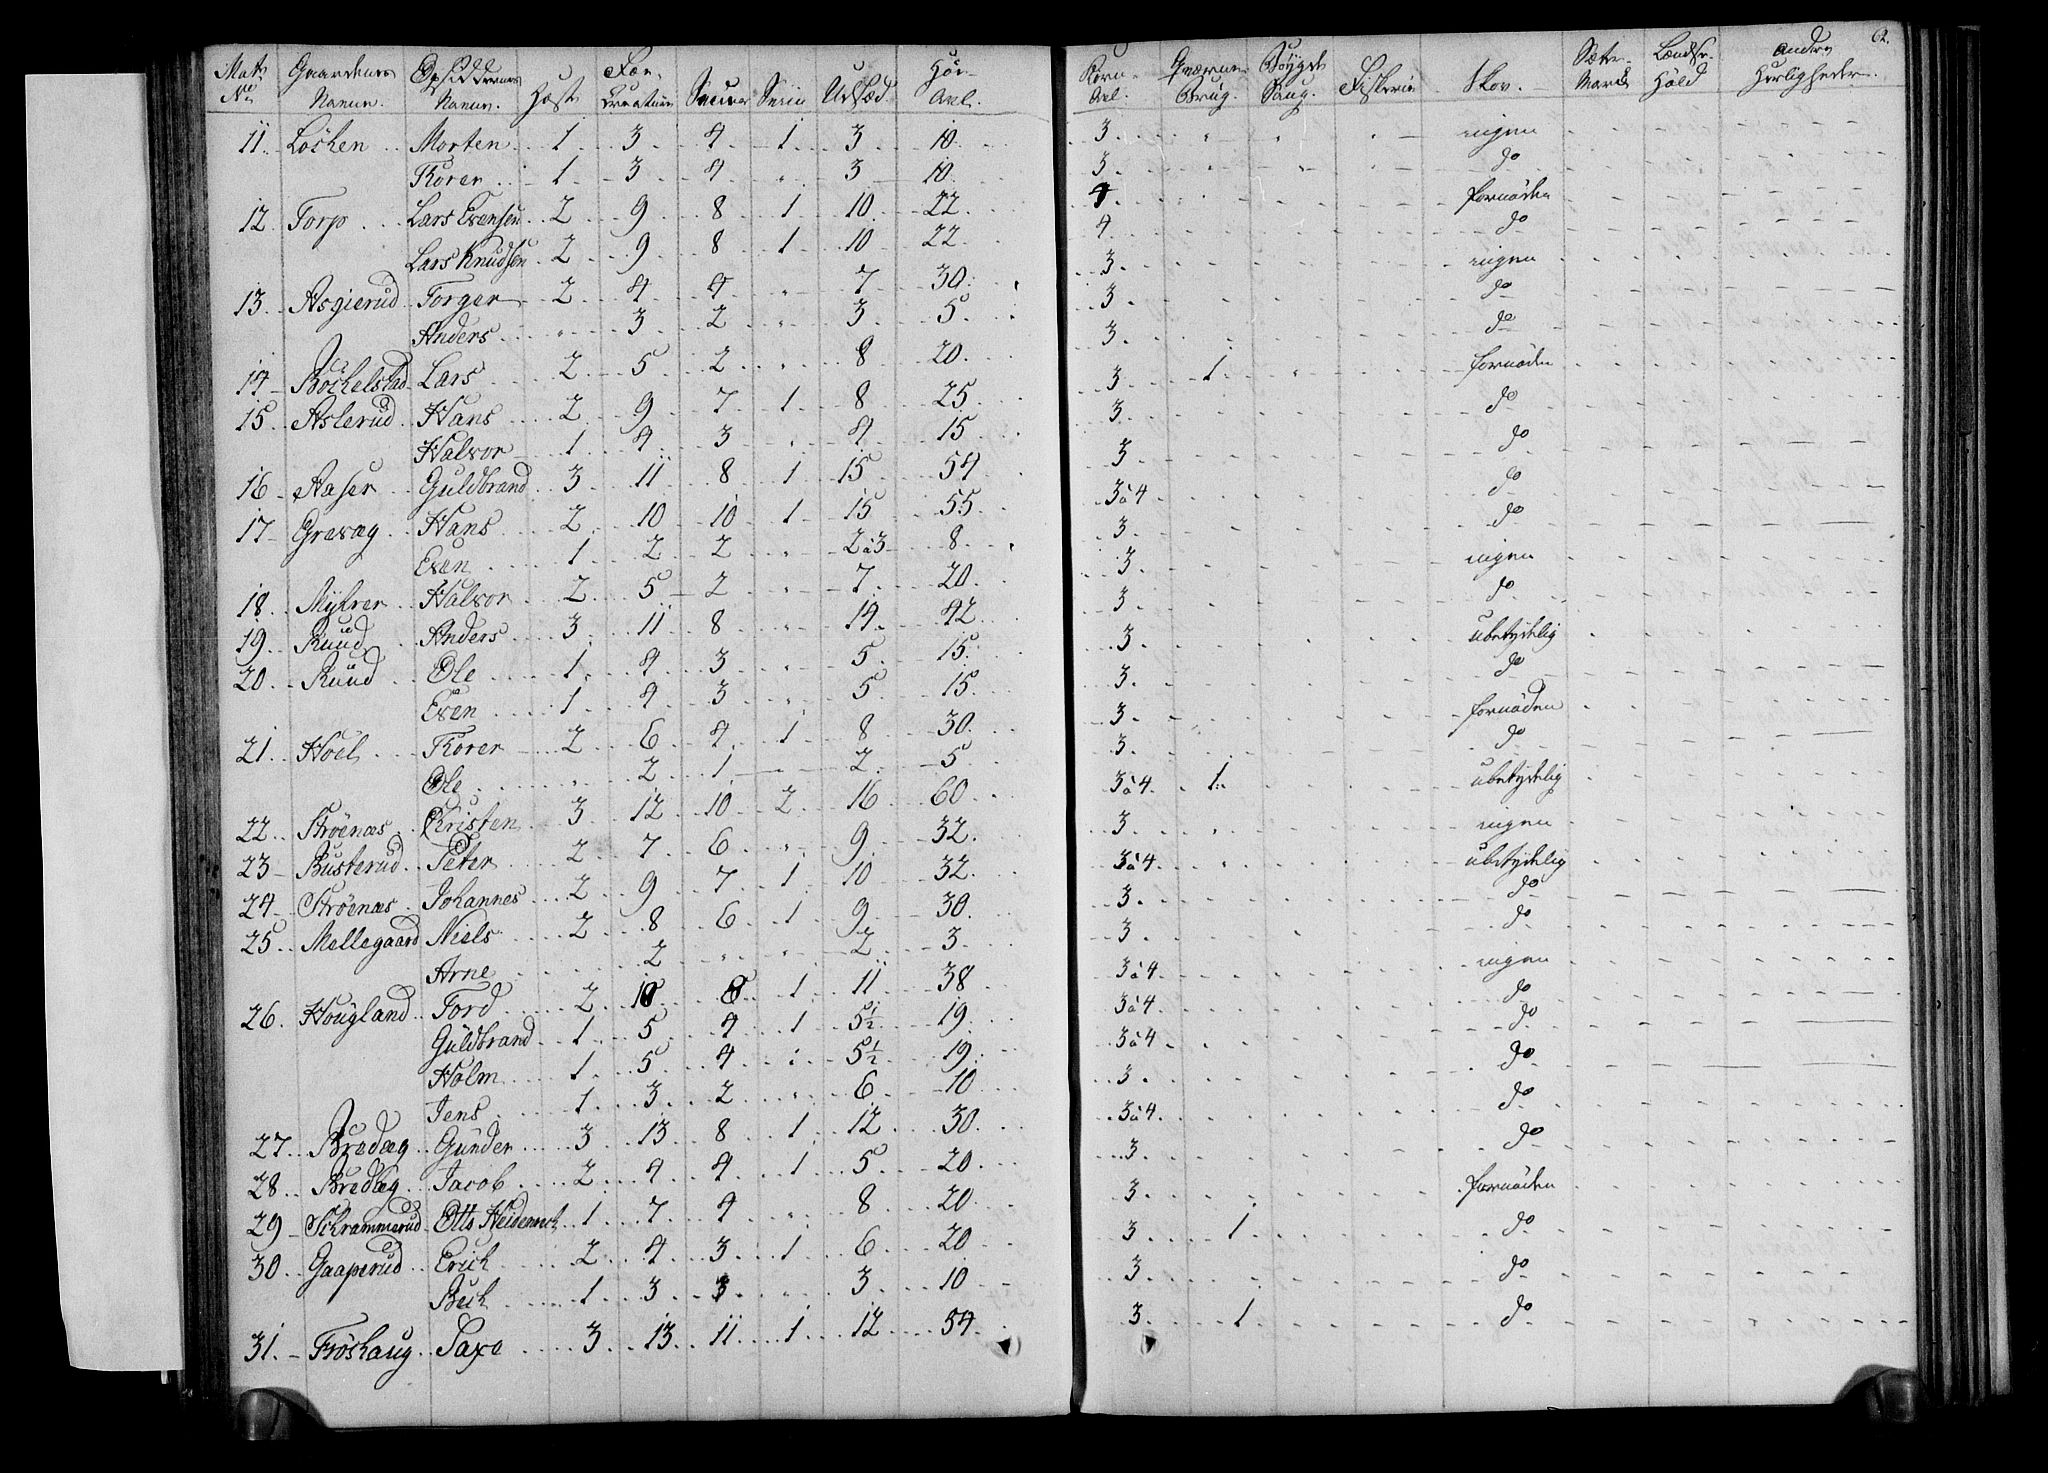 Matr Gaardenes Opsiddernes Fæe-
No Navne. Navne. Hæst Creature Sviin Udsæd Høe Avl.
11. Løchen Morten 1 3 4 1 3 10.
Thorer 1 3 4 " 3 10.
12. Torp Lars Evensen 2 9 8 1 10. 22.
Lars Knudsen 2 9 8 1 10 22.
13. Asgierud Torger 2 4 4 " 7 30.
Anders " 3 2 " 3 5.
14 Böchelstad Lars 2 5 2 " 8 20.
15. Aslerud Hans 2 9 7 1 8 25
Halvor 1 4 3 " 4 15
16 Aaser Guldbrand 3 11 8 1 15 54
17 Grevæg Hans 2 10 10 1 15 55
Even 1 2 2 " 2 à 3 8.
18. Myhrer Halvor 2 5 2 " 7. 20.
19. Ruud Anders 3 11 8 " 14 42
20. Ruud Ole 1 4 3 " 5 15.
Even 1 4 3 " 5 15.
21. Hoel Thorer 2 6 4 1 8 30.
Ole " 2 1 2. 5
22. Strøenæs Christen 3 12 10 2 16 60
23 Busterud Peter 2 7 6 " 9. 32.
24 Strøenæs Johannes 2 9 7 1 10 32.
25. Mellegaard Niels 2 8 6 1 9. 30.
Arne 2 " " 2 3.
26. Hougland Tord 2 10 6 1 11 38
Guldbrand 1 5 4 1 5½ 19.
Holm 1 5 4 5½ 19.
Jens 1 3 2 " 6 10
27 Bredæg Gunder 3 13 8 1 12 30.
28 Bredæg Jacob 2 4 4 1 5 20
29 Schrammerud Otto Heidenrich 1 7 4 " 8 20
30. Gaaperud Erich 2 4 3 1 6 20
Bech 1 3 3 " 3 10
31. Frøshaug Saxe 3 13 11 1 12 54
62.
Korn- Qværne Bøygde Fiskerie Skov. Sætte- andre
Avl. Brug. Saug. Mark Herligheder.
3 ingen
3. do
4 fornøden
4. do
3. ingen
3 do
3. do
3 1. fornöden
3. do
3 do
3 à 4 do
3. do
3. ingen
3. do
3. ubetydelig
3. do
3 fornøden
3. do
3 à 4 1. ubetydelig
3 ingen
3 à 4 ubetydelig
3. do
3. do
3 à 4 ingen
3 à 4 do
3 à 4 do
3. do
3 à 4. do
3. do
3. fornøden
3 1 do
3. do
3. 1 do